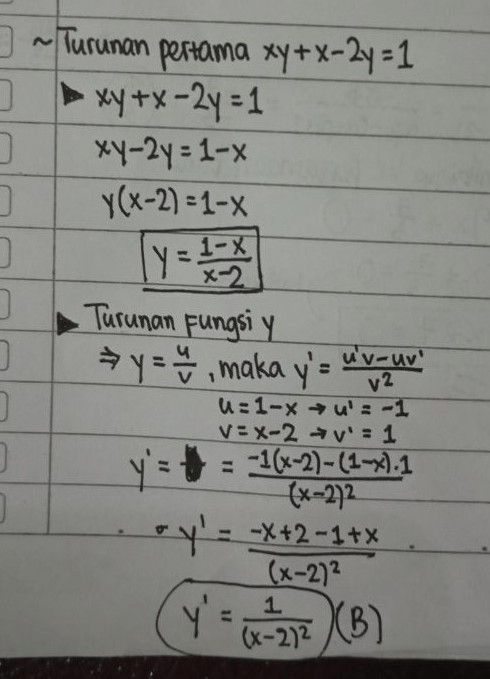 ~ Turunan pertama xy+x-2y=1
▶ xy+x-2y=1
xy-2y=1-x
y(x-2)=1-x
y = (1-x)/(x-2)
▶ Turunan Fungsi y
⇒ y = u/v, maka y' = (u'v-uv')/v²
u=1-x → u' = -1
v=x-2 → v' = 1
y' = = (-1(x-2)-(1-x).1)/(x-2)²
y' = (-x+2-1+x)/(x-2)²
y' = 1/(x-2)² (B)